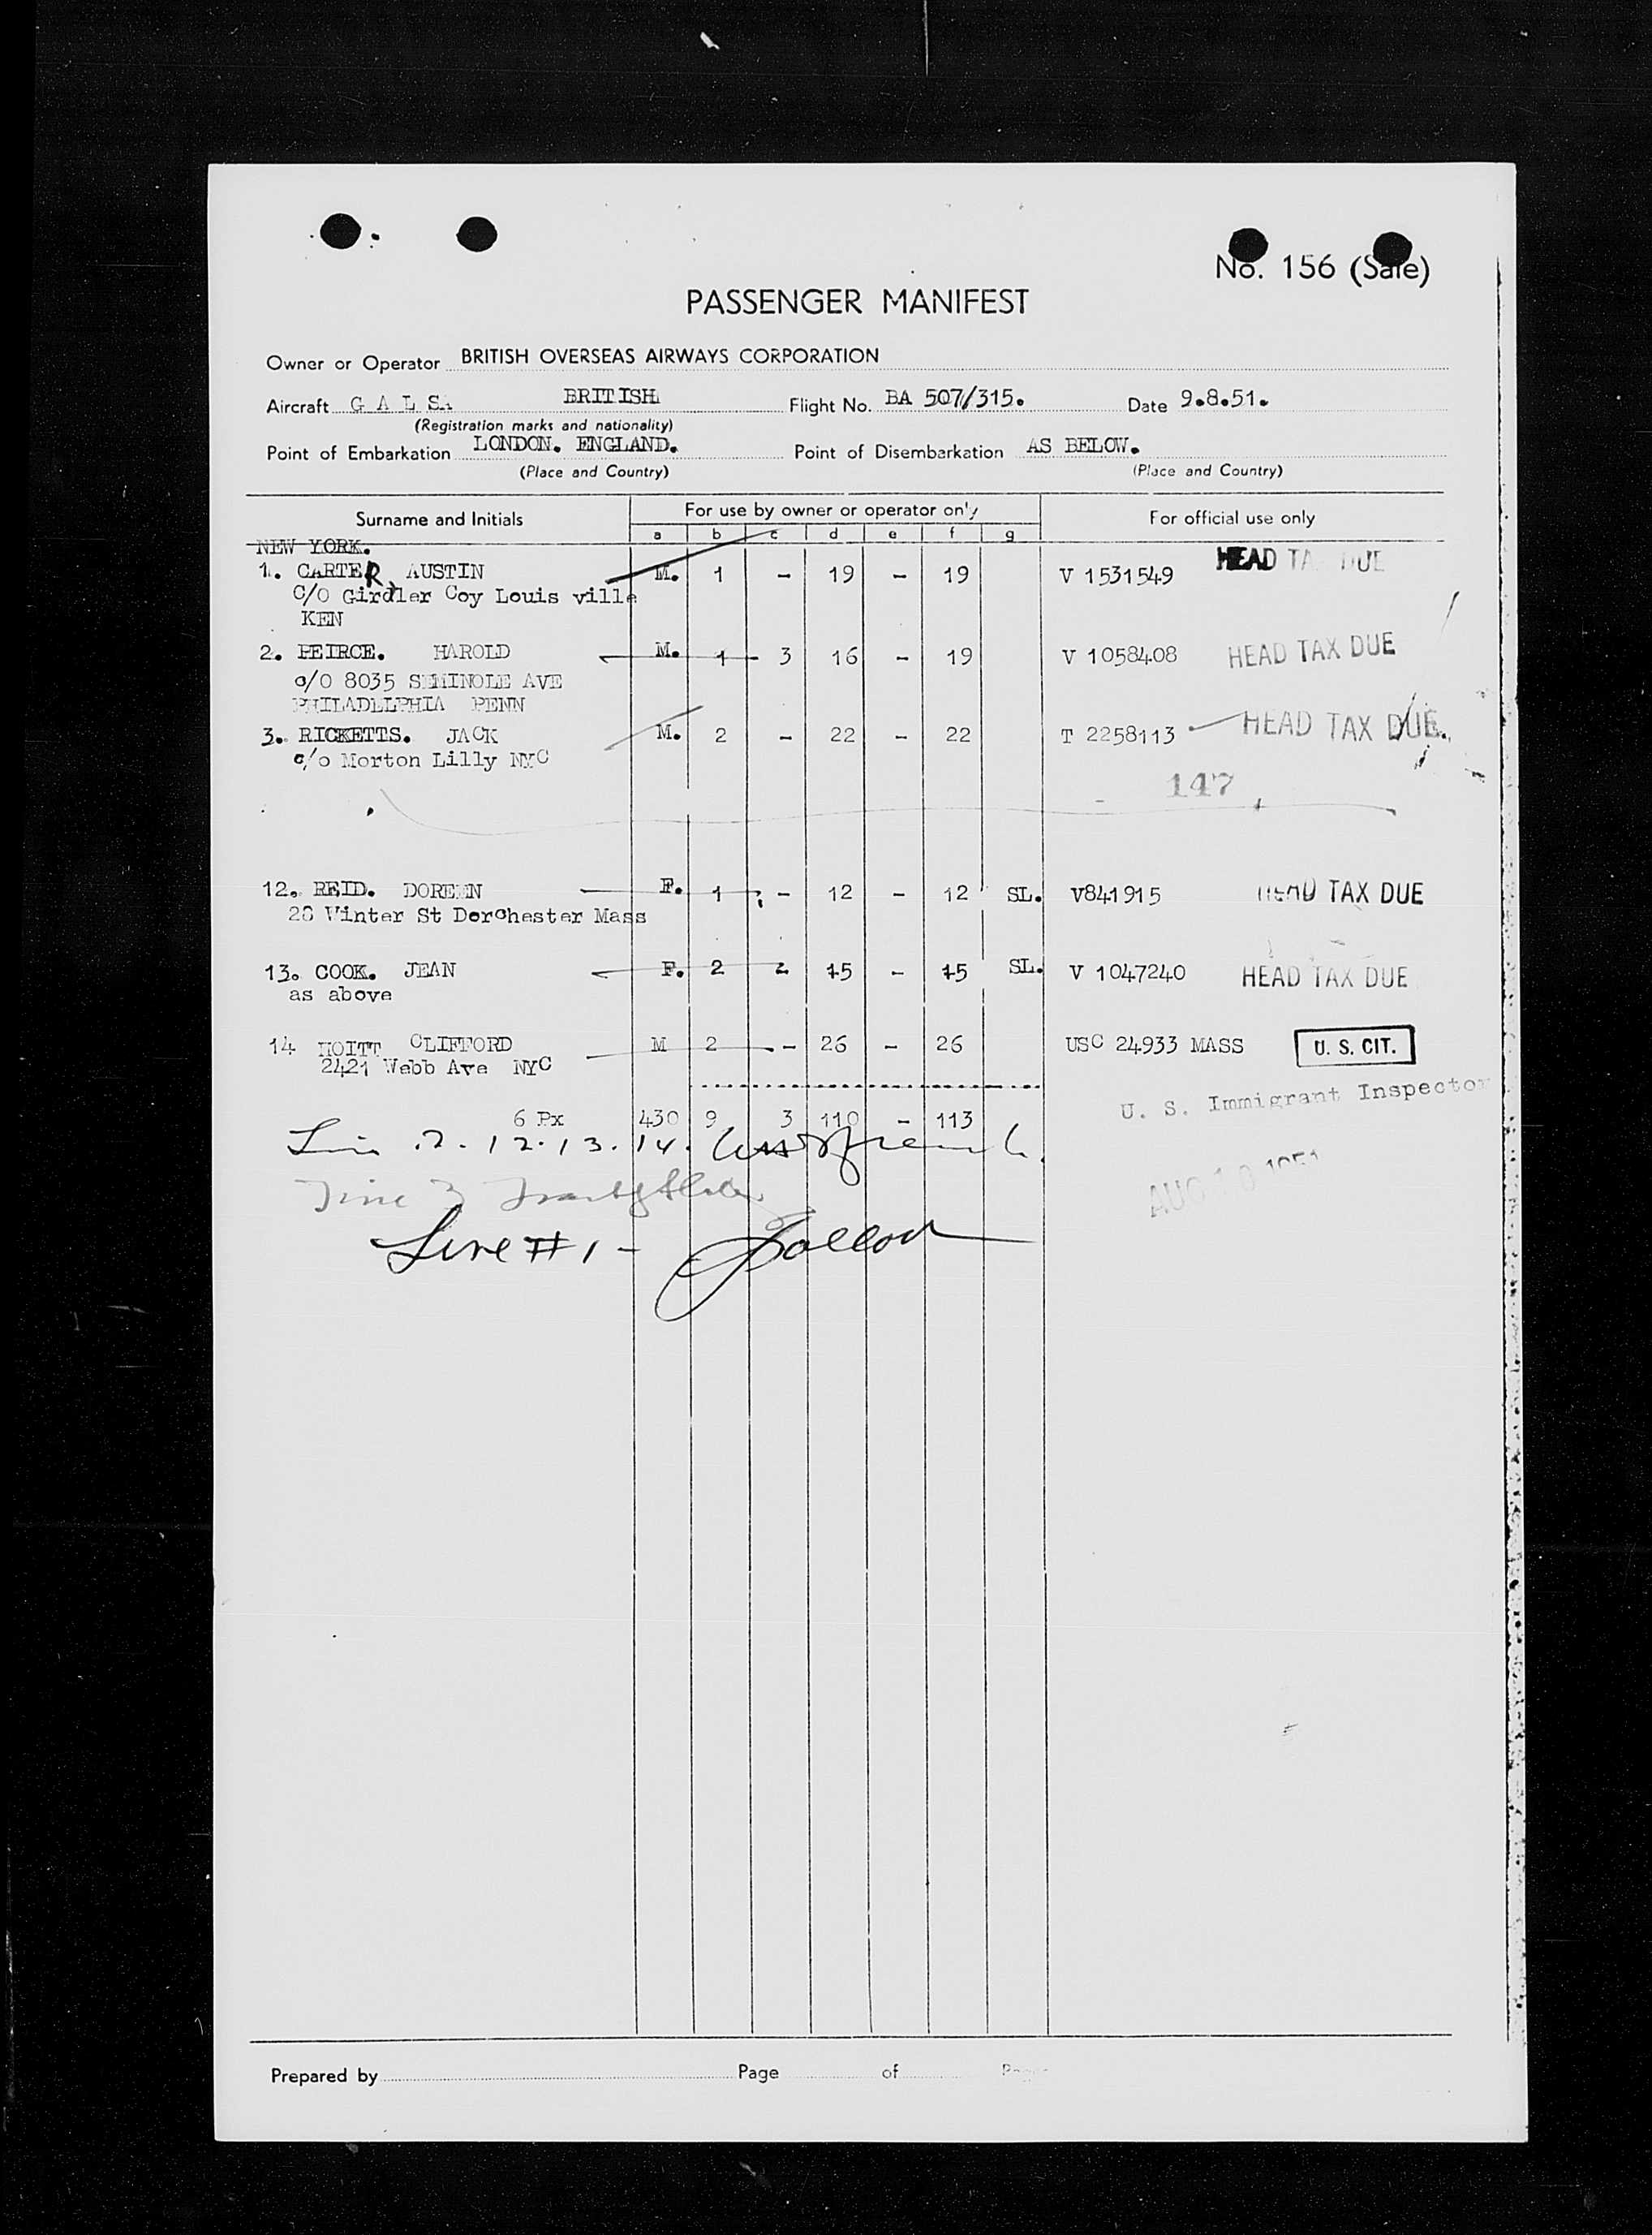 No. 156 (Sale)
PASSENGER MANIFEST
Owner or Operator BRITISH OVERSEAS AIRWAYS CORPORATION
Aircraft G A L S A BRITISH Flight No. BA 507/315. Date 9.8.51.
(Registration marks and nationality)
Point of Embarkation LONDON. ENGLAND. Point of Disembarkation AS BELOW.
(Place and Country) (Place and Country)
Surname and Initials For use by owner or operator only For official use only
a b c d e f g
NEW YORK.
1. CARTER, AUSTIN M. 1 - 19 - 19 V 1531549 HEAD TAX DUE
C/O Girdler Coy Louis ville
KEN
2. PEIRCE. HAROLD M. 1 - 3 16 - 19 V 1058408 HEAD TAX DUE
c/O 8035 SEMINOLE AVE
PHILADELPHIA PENN
3. RICKETTS. JACK M. 2 - 22 - 22 T 2258113 HEAD TAX DUE.
c/o Morton Lilly NYC
147
12. REID. DOREEN F. 1 - 12 - 12 SL. V841915 HEAD TAX DUE
28 Winter St Dorchester Mass
13. COOK. JEAN F. 2 - 15 - 15 SL. V 1047240 HEAD TAX DUE
as above
14 HOITT CLIFFORD M 2 - 26 - 26 USC 24933 MASS U. S. CIT.
2421 Webb Ave NYC
U. S. Immigrant Inspector
6 Px 430 9 3 110 - 113
2. 12. 13. 14.
AUG 10 1951
Line #1 -
Prepared by Page of Pages